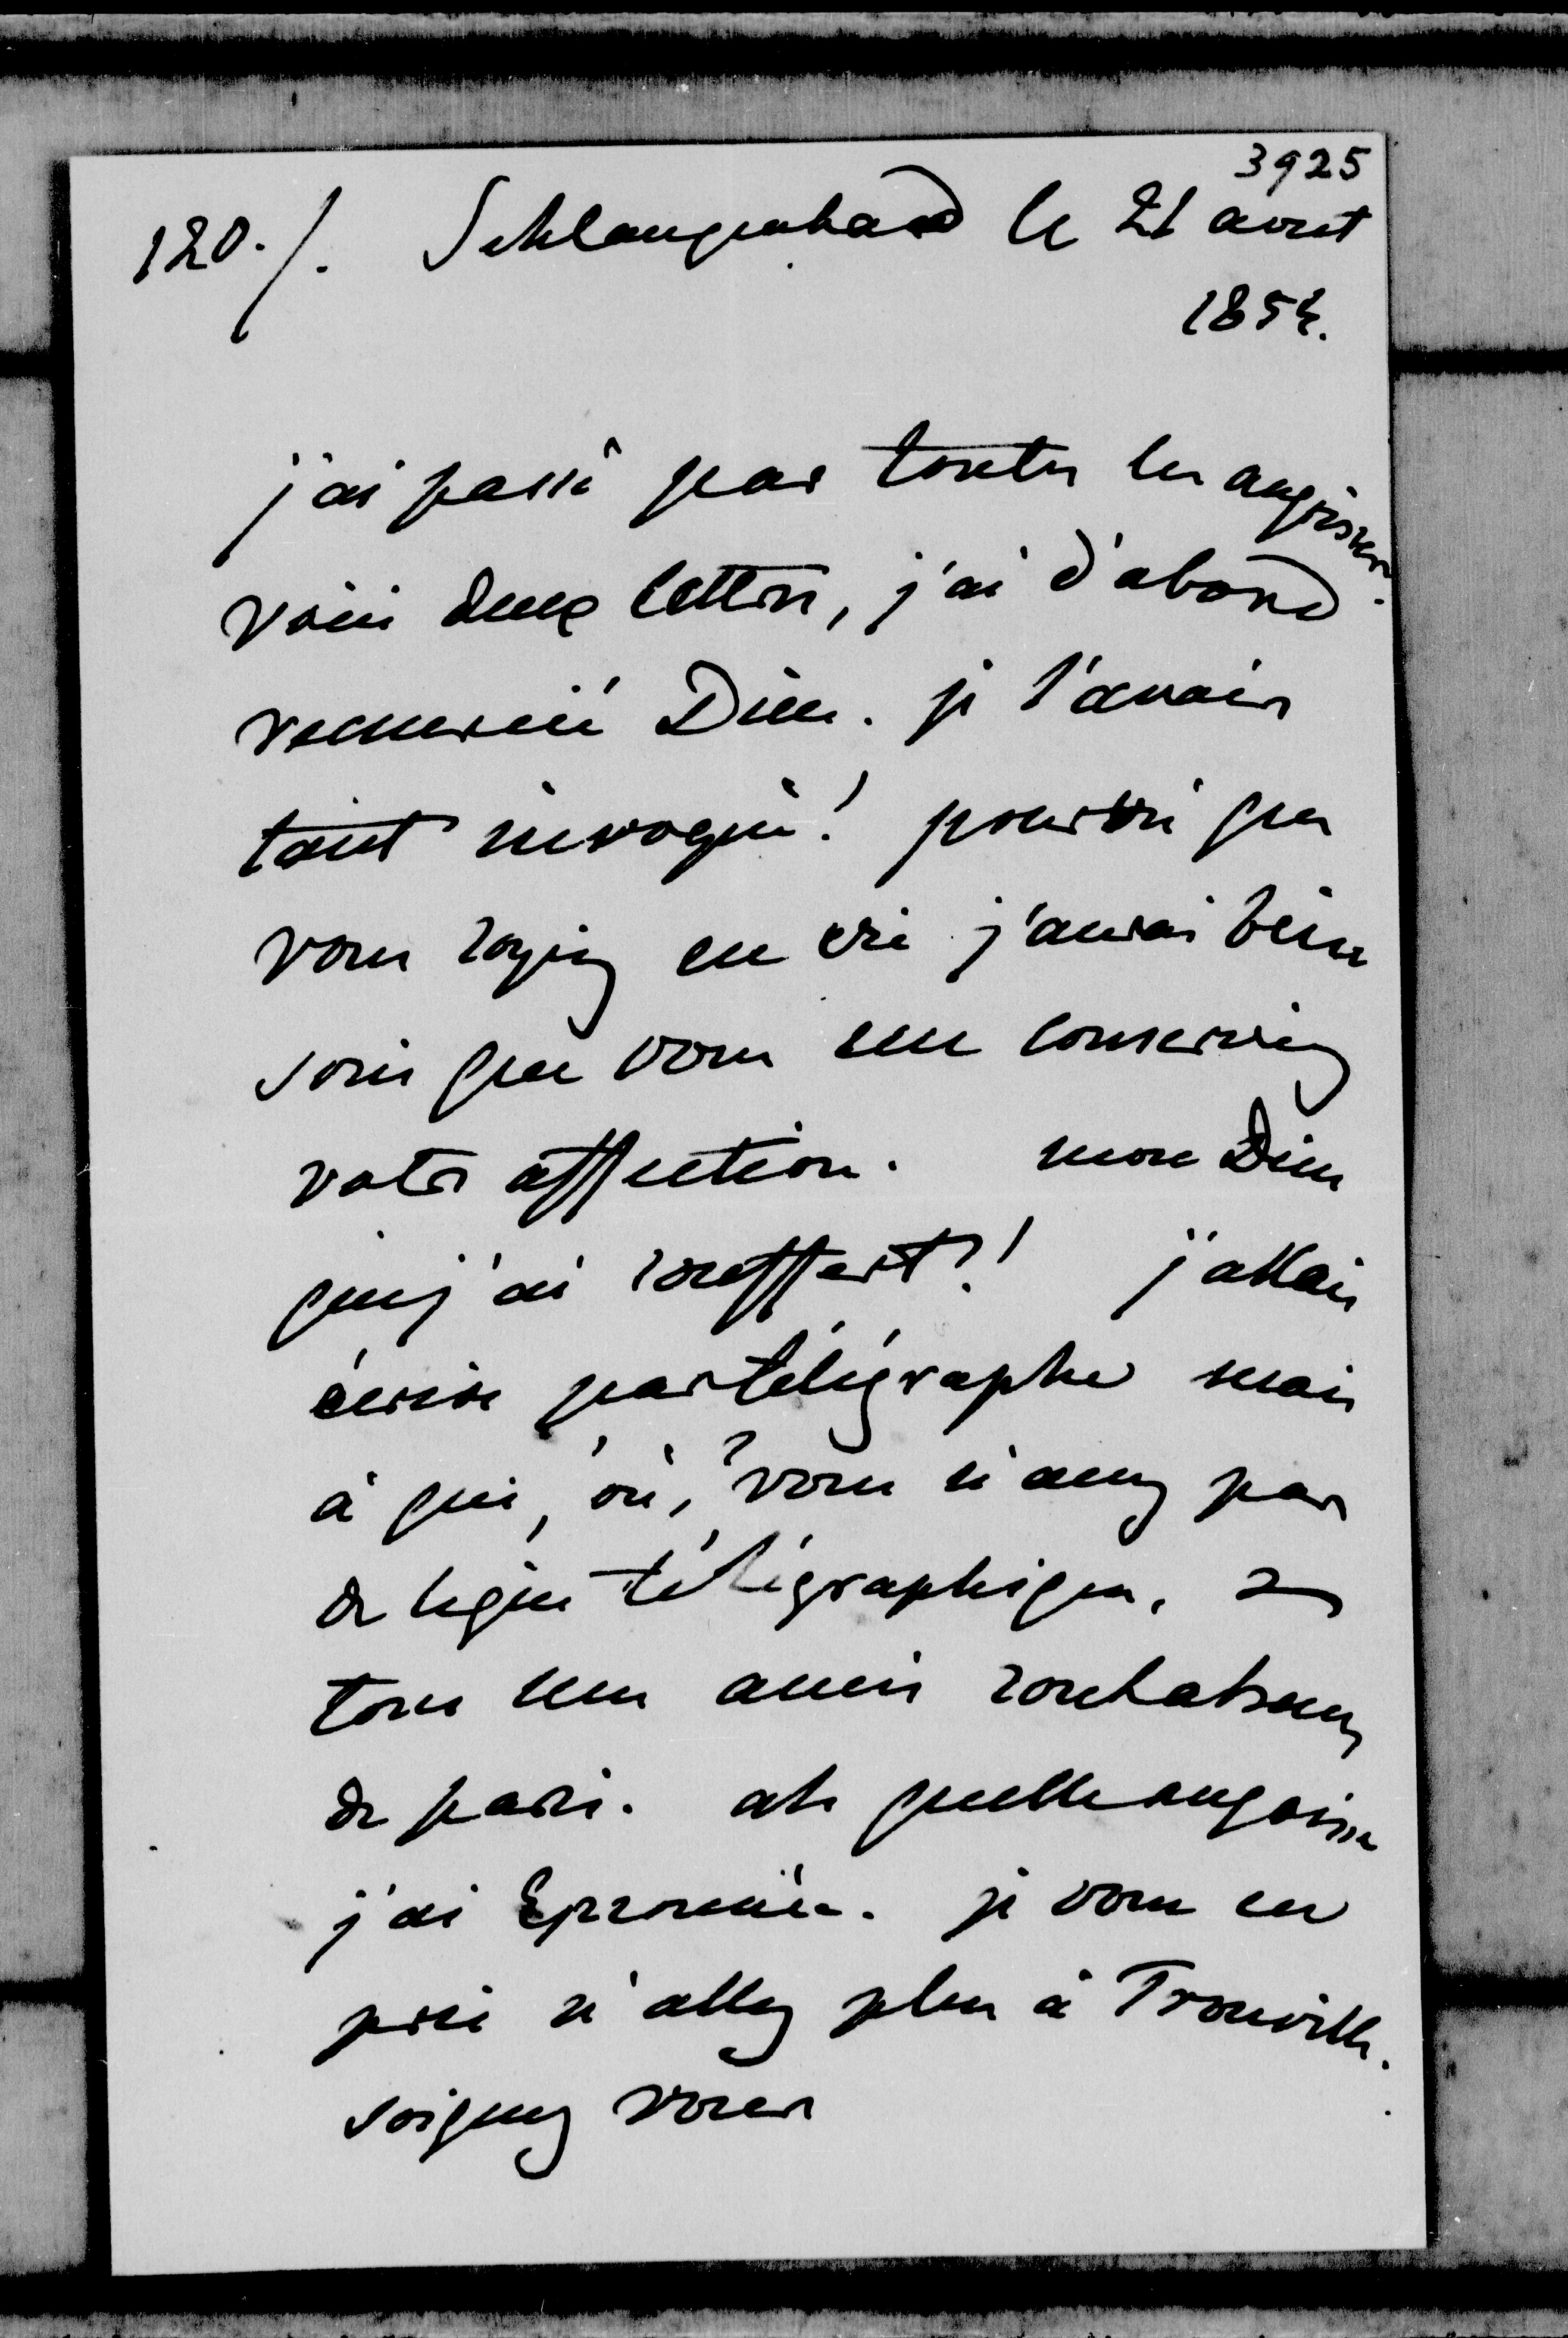 3925
120./. Schlangenbad le 21 aout
1854.
j'ai passé par toutes les angoisses.
voici deux lettres, j'ai d'abord
remercié Dieu. je l'avais
tant invoqué! pourvu que
vous soyiez en vie j'aurai bien
soin que vous me conserviez
votre affection. mon Dieu
que j'ai souffert! j'allais
écrire par télégraphe mais
à qui, où, ? vous n'avez pas
de ligne télégraphique, &
tous mes amis sont absens
de paris. ah quelle angoisse
j'ai éprouvée. je vous en
prie n'allez plus à Trouville.
soignez vous